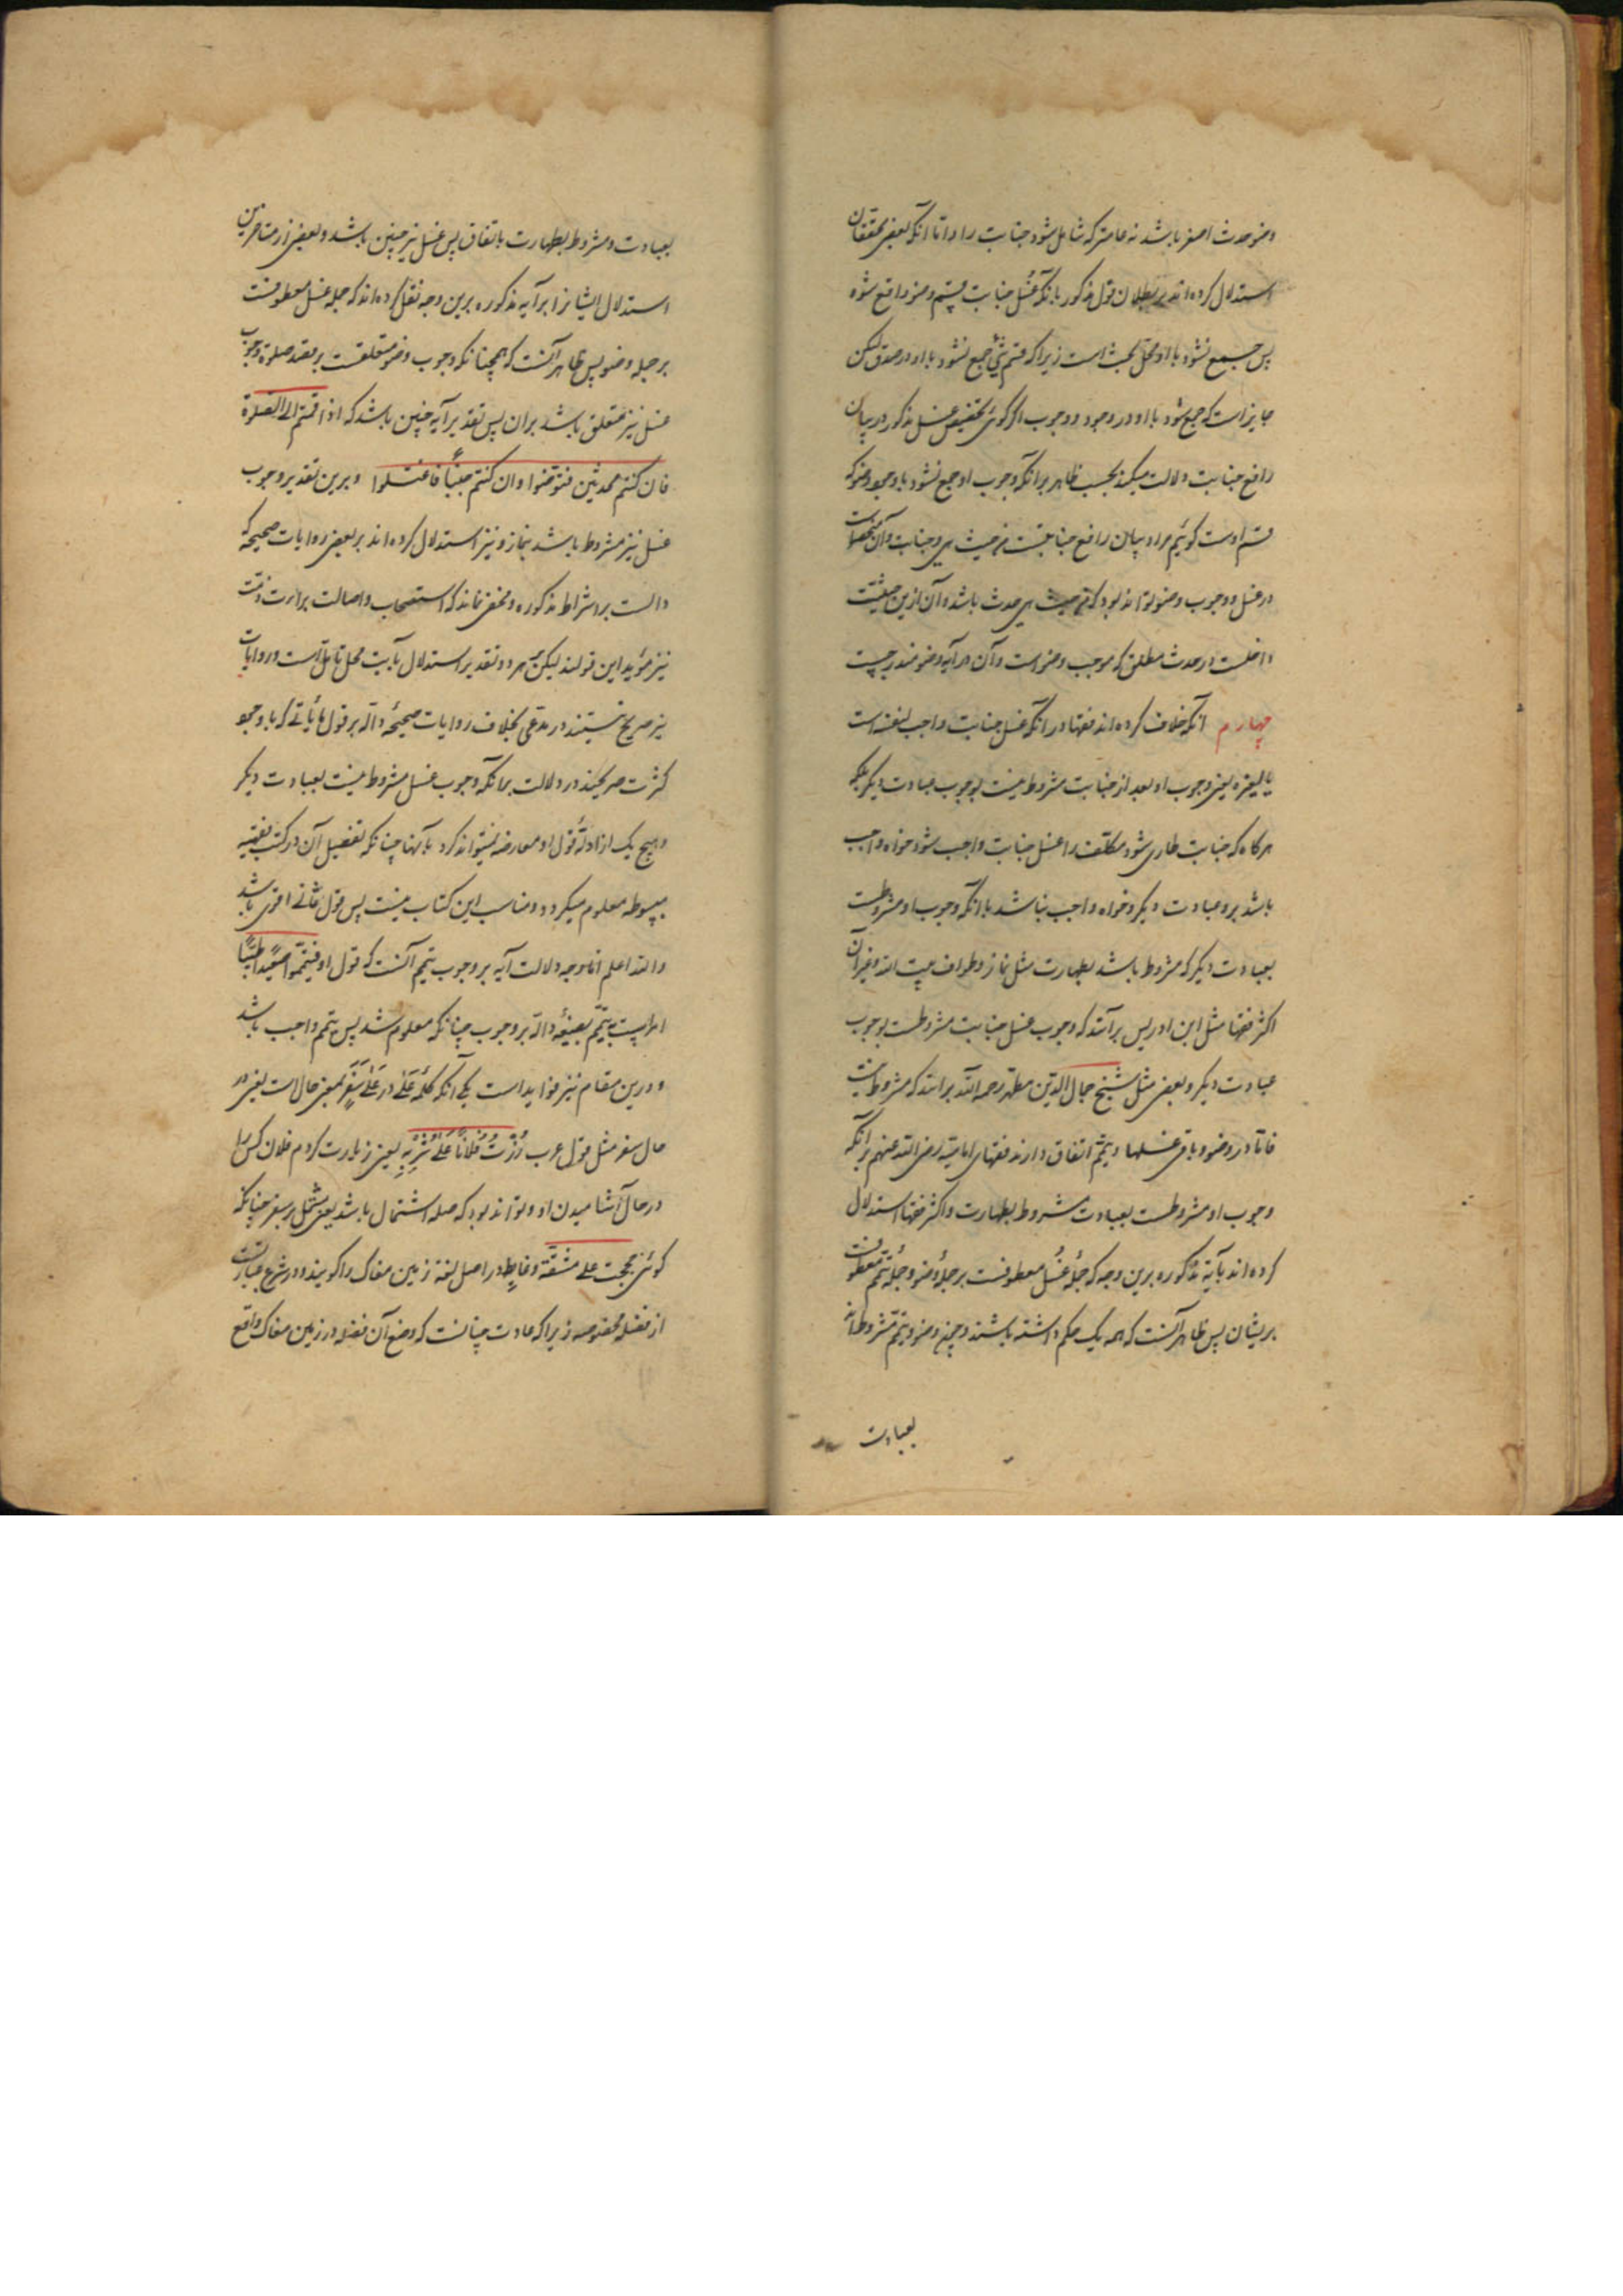 وضو حدث اصغر باشد نه عامتر که شامل شود جنابت را و اما آنکه بعضی محققان
استدلال کرده‌اند بر بطلان قول مذکور بانکه غسل جنابت قسیم وضو واقع شده
پس جمع نشود با او محل بحث است زیرا که قسیم شیٔ جمع نشود با او در صدق لیکن
جایز است که جمع شود با او در وجود و وجوب اگر گوئی تخصیص غسل مذکور در بیان
رافع جنابت دلالت میکند بحسب ظاهر برانکه وجوب او جمع نشود با وجوب وضو که
قسیم اوست گوئیم مراد بیان رافع جنابتست من حیث هی جنابت و آن منحصر است
در غسل و وجوب وضو تواند بود که من حیث هی حدث باشد و آن ازین حیثیت
داخلست در حدث مطلق که موجب وضو است و آن در آیه وضو مندرجست
چهارم آنکه خلاف کرده‌اند فقها در آنکه غسل جنابت واجب لنفسه است
یا لغیره یعنی وجوب او بعد از جنابت مشروط نیست بوجوب عبادت دیگر بلکه
هرگاه که جنابت طاری شود مکلف را غسل جنابت واجب شود خواه واجب
باشد برو عبادت دیگر و خواه واجب نباشد یا آنکه وجوب او مشروطست
بعبادت دیگر که مشروط باشد بطهارت مثل نماز و طواف بیت الله و غیر آن
اکثر فقها مثل ابن ادریس برآنند که وجوب غسل جنابت مشروطست بوجوب
عبادت دیگر و بعضی مثل شیخ جمال الدین مطهر رحمه الله برانند که مشروط نیست
فاما در وضو و باقی غسلها و تیمم اتفاق دارند فقهای امامیه رضی الله عنهم برانکه
وجوب او مشروطست بعبادت مشروط بطهارت و اکثر فقها استدلال
کرده‌اند بآیهٔ مذکوره برین وجه که جملهٔ غسل معطوفست بر جملهٔ وضو و جملهٔ تیمم معطوفست
بریشان پس ظاهر آنست که همه یک حکم داشته باشند و چون وضو و تیمم مشروط‌اند
بعبادت
بعبادت مشروط بطهارت باتفاق پس غسل نیز چنین باشد و بعضی از متاخرین
استدلال ایشانرا بر آیه مذکوره برین وجه نقل کرده‌اند که جمله غسل معطوفست
بر جمله وضو پس ظاهر آنست که همچنانکه وجوب وضو متعلقست بر قصد صلوة وجوب
غسل نیز متعلق باشد بران پس تقدیر آیه چنین باشد که اذا قمتم الی الصلوة
فان کنتم محدثین فتوضوا و ان کنتم جنباً فاغتسلوا و برین تقدیر وجوب
غسل نیز مشروط باشد بنماز و نیز استدلال کرده‌اند بر بعضی روایات صحیحه که
دالست بر اشراط مذکوره و مخفی نماند که استصحاب و اصالت برارت ذمت
نیز موید این قولند لیکن هر دو تقدیر استدلال بآیت محل تامل است و روایات
نیز صریح نیستند در مدعی بخلاف روایات صحیحهٔ داله بر قول ثانی که با وجود
کثرت صریحند در دلالت برانکه وجوب غسل مشروط نیست بعبادت دیگر
و هیچ یک از ادلهٔ قول او معارضه نیتواند کرد بآنها چنانکه تفصیل آن در کتب فقهیه
مبسوطه معلوم میگردد و مناسب این کتاب نیست پس قول ثانی اقوی باشد
والله اعلم اما وجه دلالت آیه بر وجوب تیمم آنست که قول او فتیمموا صعیداً طیباً
امر است بتیمم بصیغهٔ داله بر وجوب چنانکه معلوم شد پس تیمم واجب باشد
و درین مقام نیز فواید است یکی آنکه کلمهٔ علی در علی سفر بمعنی حال است یعنی در
حال سفر مثل قول عرب زرت فلاناً علی شربه یعنی زیارت کردم فلان کس را
در حال آشامیدن او و تواند بود که صله اشتمال باشد یعنی مشتمل بر سفر چنانکه
گوئی حججت علی مشقة و غایط در اصل لغة زمین مغاک را گویند و در شرع عبارتست
از فضله مخصوصه زیرا که عادت چنانست که وضع آن فضله در زمین مغاک واقع